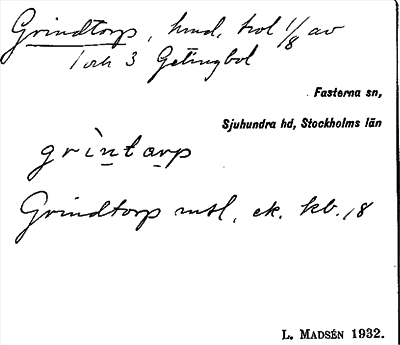 Grindtorp, hmd, trol 1/8 av
1 och 3 Getingbol
Fasterna sn,
Sjuhundra hd, Stockholms län
grìntarp
Grindtorp mtl, ek. kb. 18
L. MADSÉN 1932.